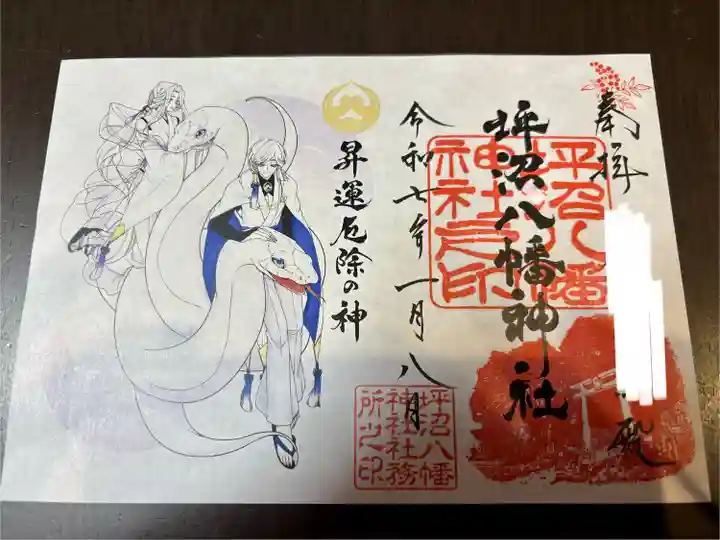 奉拝
殿
坪沼八幡神社
坪沼八幡
神社之印
令和七年一月八日
坪沼八幡
神社社務
所之印
昇運厄除の神